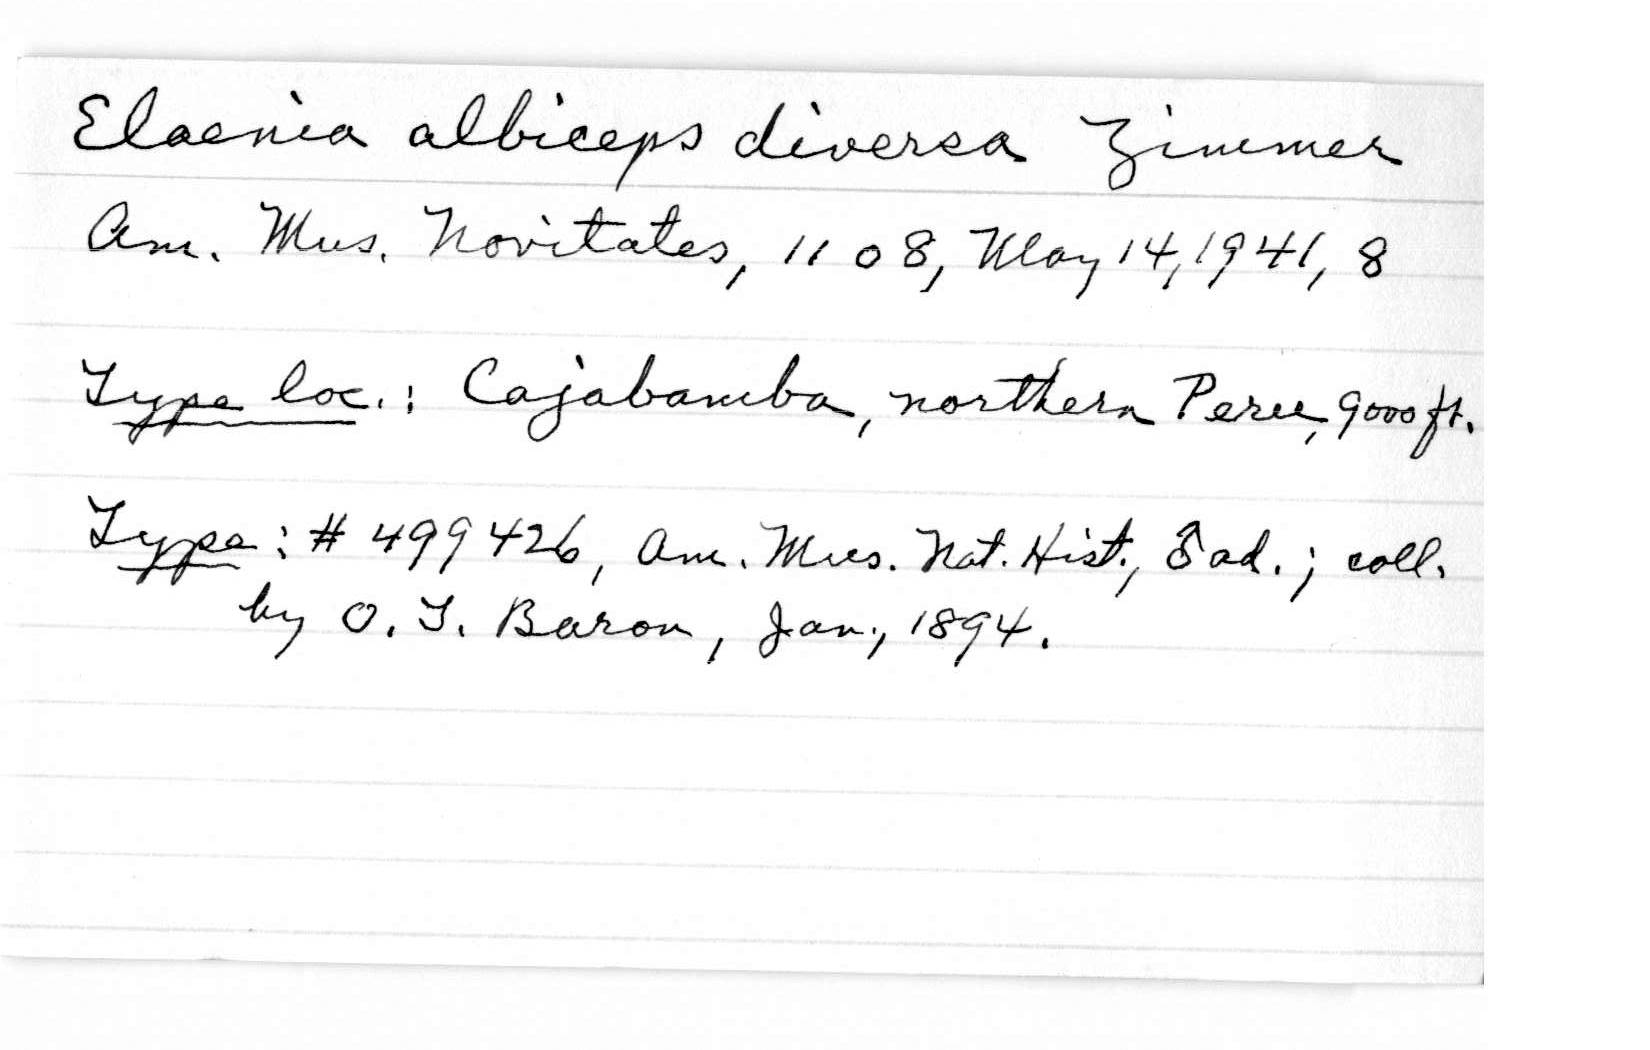 Elaenia albiceps diversa Zimmer
Am. Mus. Novitates, 1108, May 14, 1941, 8
Type loc.: Cajabamba, northern Peru, 9000 ft.
Type: # 499426, Am. Mus. Nat. Hist., ♂ ad.; coll.
by O. T. Baron, Jan., 1894.